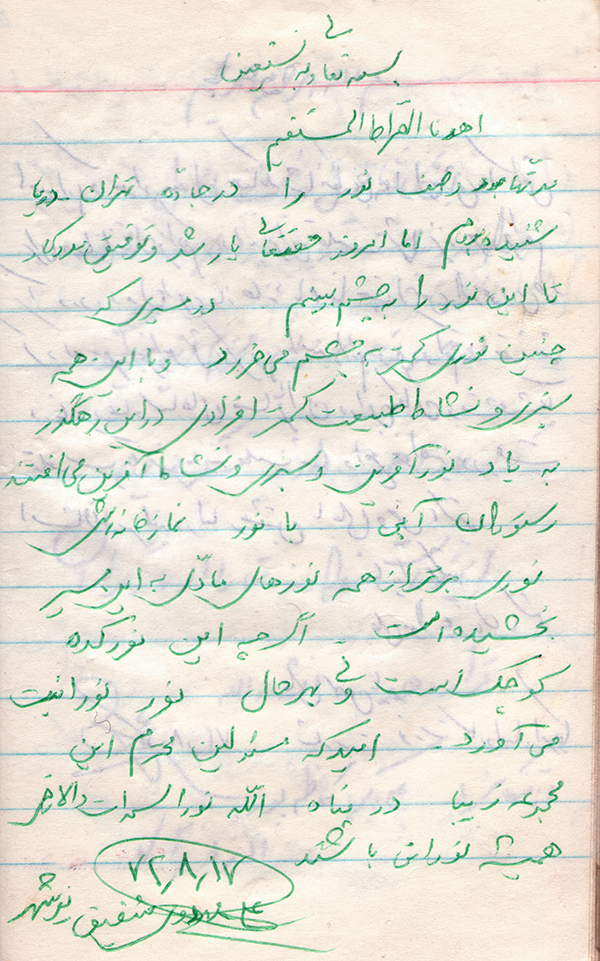 بسمه تعالی و به نستعین
اهدنا الصراط المستقیم
مدتها بود وصف نور را در جاده تهران - دریا
شنیده بودم اما امروز حقتعالی یار شد و توفیق مددکار
تا این نور را به چشم ببینم در مسیری که
چنین نوری کمتر به چشم می‌خورد و با این همه
سبزی و نشاط طبیعت کمتر افرادی در این رهگذر
به یاد نورآفرین و سبزی و نشاط آفرین می‌افتند
رستوران آبی با نور نمازخانه‌اش
نوری برتر از همه نورهای مادّی به این مسیر
بخشیده است - اگرچه این نورکده
کوچک است ولی بهرحال نور نورانیت
می‌آورد - امید که مسئولین محترم این
مجموعه زیبا در پناه الله نور السموات والارض
همیشه نورانی باشند
۷۲٫۸٫۱۷
شفیقی نوشهر